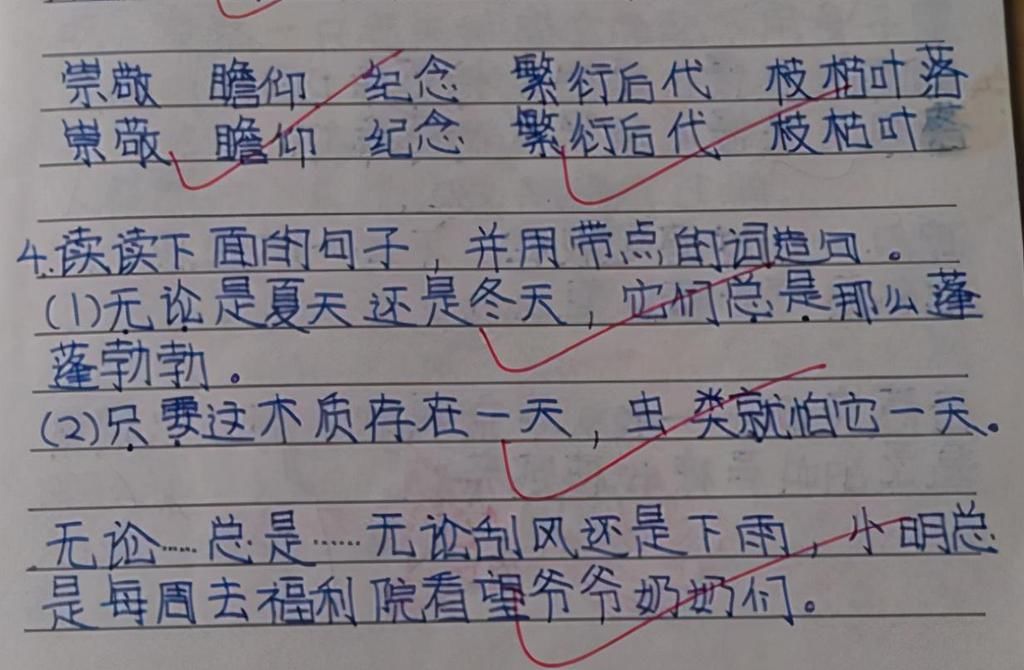 崇敬 瞻仰 纪念 繁衍后代 枝枯叶落
崇敬 瞻仰 纪念 繁衍后代 枝枯叶落
4.读读下面的句子，并用带点的词造句。
(1)无论是夏天还是冬天，它们总是那么蓬
蓬勃勃。
(2)只要这木质存在一天，虫类就怕它一天。
无论……总是……无论刮风还是下雨，小明总
是每周去福利院看望爷爷奶奶们。